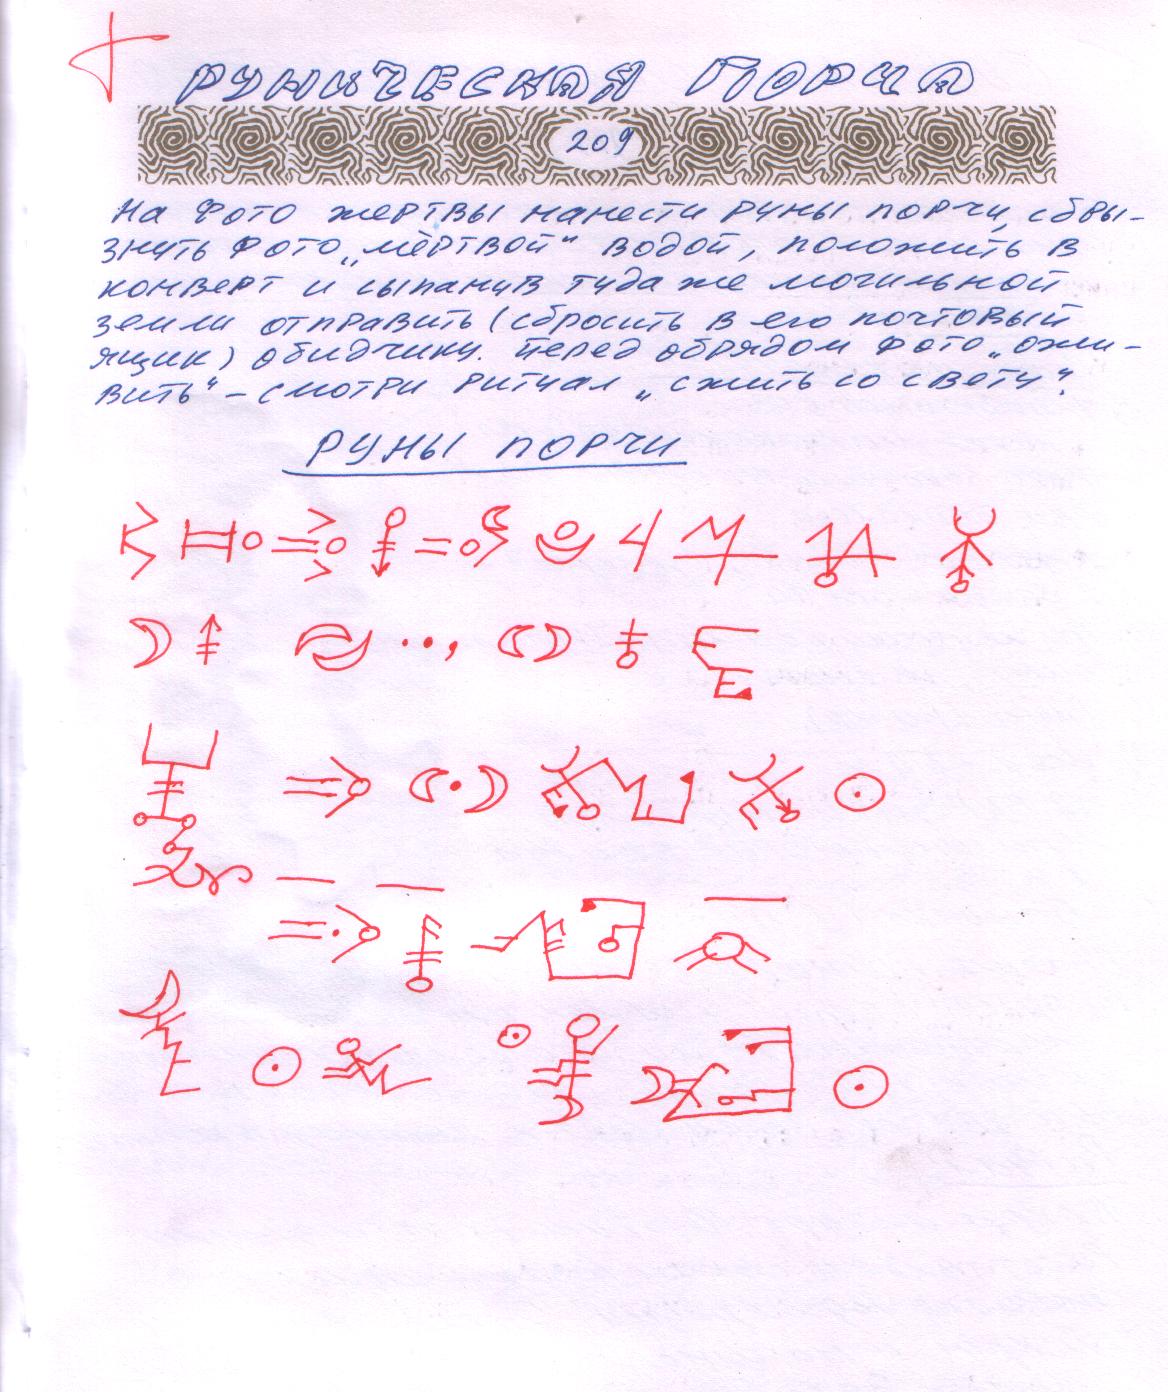 РУНИЧЕСКАЯ ПОРЧА
209
На фото жертвы нанести руны порчи, сбры-
знуть фото „мёртвой“ водой, положить в
конверт и сыпанув туда же могильной
земли отправить (сбросить в его почтовый
ящик) обидчику. Перед обрядом фото „ожи-
вить“ – смотри ритуал „сжить со свету“.
РУНЫ ПОРЧИ